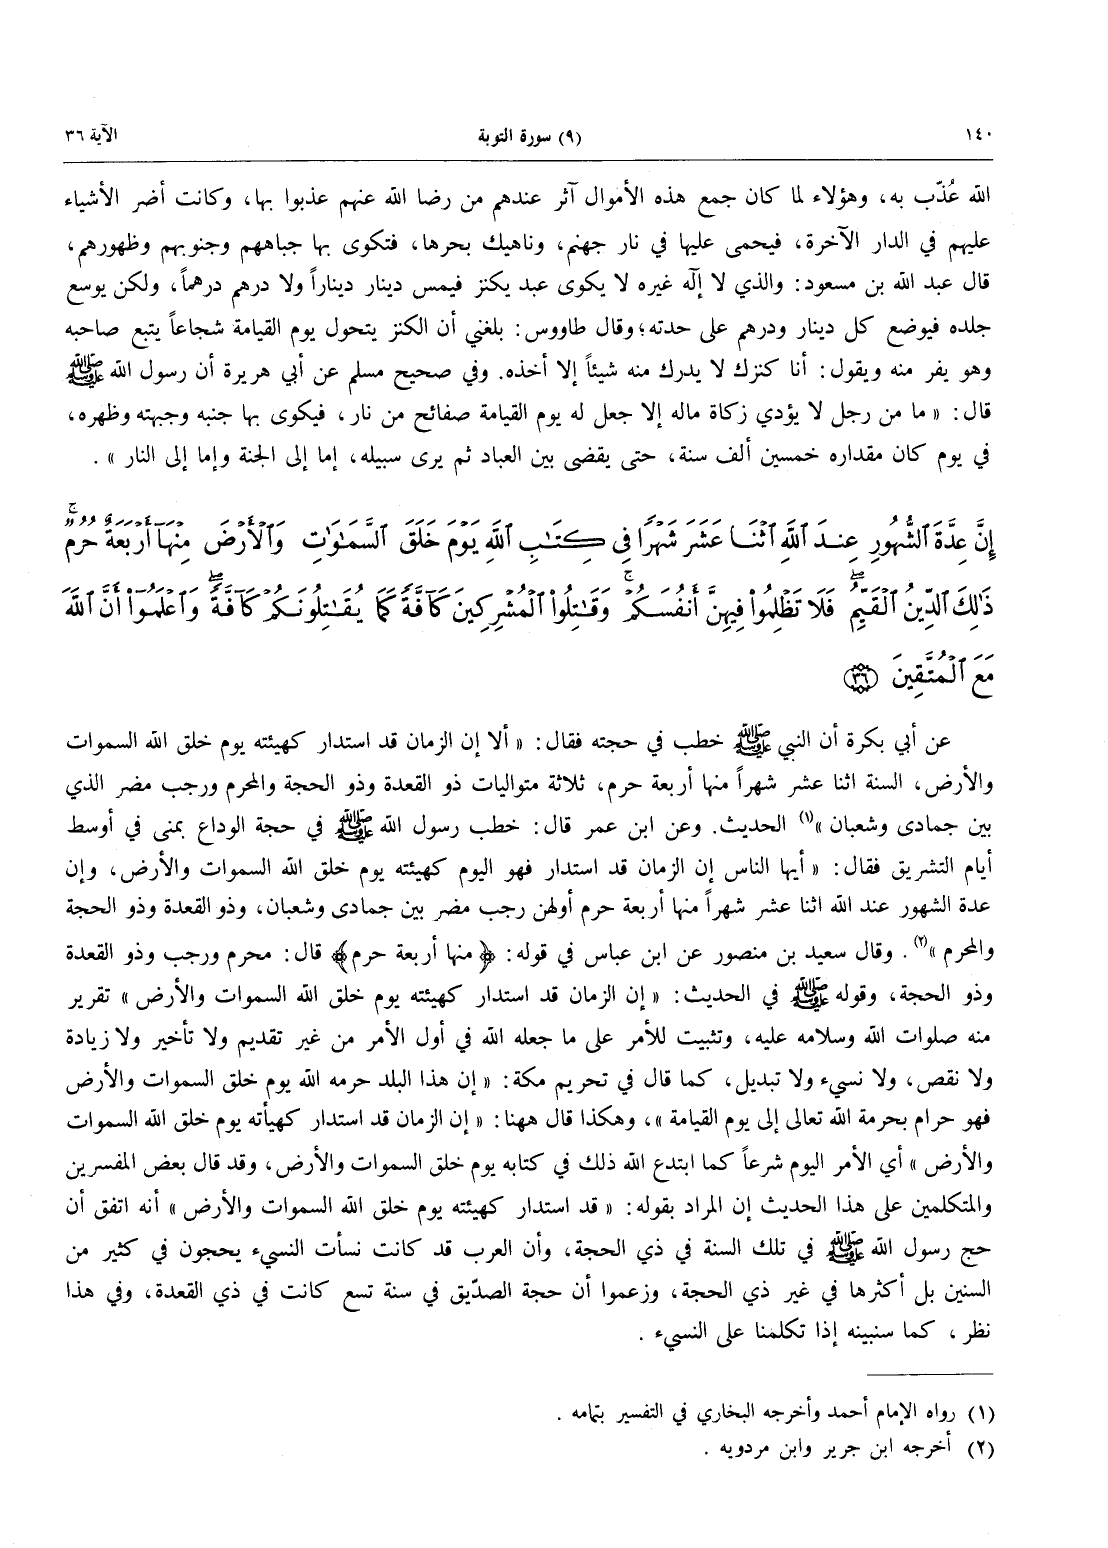 ١٤٠ (٩) سورة التوبة الآية ٣٦
الله عُذّب به، وهؤلاء لما كان جمع هذه الأموال آثر عندهم من رضا الله عنهم عذبوا بها، وكانت أضر الأشياء
عليهم في الدار الآخرة، فيحمى عليها في نار جهنم، وناهيك بحرها، فتكوى بها جباههم وجنوبهم وظهورهم،
قال عبد الله بن مسعود: والذي لا إلٓه غيره لا يكوى عبد يكنز فيمس دينار ديناراً ولا درهم درهماً، ولكن يوسع
جلده فيوضع كل دينار ودرهم على حدته؛ وقال طاووس: بلغني أن الكنز يتحول يوم القيامة شجاعاً يتبع صاحبه
وهو يفر منه ويقول: أنا كنزك لا يدرك منه شيئاً إلا أخذه. وفي صحيح مسلم عن أبي هريرة أن رسول الله ﷺ
قال: « ما من رجل لا يؤدي زكاة ماله إلا جعل له يوم القيامة صفائح من نار، فيكوى بها جنبه وجبهته وظهره،
في يوم كان مقداره خمسين ألف سنة، حتى يقضى بين العباد ثم يرى سبيله، إما إلى الجنة وإما إلى النار ».
إِنَّ عِدَّةَ ٱلشُّهُورِ عِندَ ٱللَّهِ ٱثْنَا عَشَرَ شَهْرًا فِى كِتَـٰبِ ٱللَّهِ يَوْمَ خَلَقَ ٱلسَّمَـٰوَٰتِ وَٱلْأَرْضَ مِنْهَآ أَرْبَعَةٌ حُرُمٌ ۚ
ذَٰلِكَ ٱلدِّينُ ٱلْقَيِّمُ ۖ فَلَا تَظْلِمُوا۟ فِيهِنَّ أَنفُسَكُمْ ۚ وَقَـٰتِلُوا۟ ٱلْمُشْرِكِينَ كَآفَّةً كَمَا يُقَـٰتِلُونَكُمْ كَآفَّةً ۖ وَٱعْلَمُوٓا۟ أَنَّ ٱللَّهَ
مَعَ ٱلْمُتَّقِينَ ﴿٣٦﴾
عن أبي بكرة أن النبي ﷺ خطب في حجته فقال: « ألا إن الزمان قد استدار كهيئته يوم خلق الله السموات
والأرض، السنة اثنا عشر شهراً منها أربعة حرم، ثلاثة متواليات ذو القعدة وذو الحجة والمحرم ورجب مضر الذي
بين جمادى وشعبان »(١) الحديث. وعن ابن عمر قال: خطب رسول الله ﷺ في حجة الوداع بمنى في أوسط
أيام التشريق فقال: « أيها الناس إن الزمان قد استدار فهو اليوم كهيئته يوم خلق الله السموات والأرض، وإن
عدة الشهور عند الله اثنا عشر شهراً منها أربعة حرم أولهن رجب مضر بين جمادى وشعبان، وذو القعدة وذو الحجة
والمحرم »(٢). وقال سعيد بن منصور عن ابن عباس في قوله: ﴿منها أربعة حرم﴾ قال: محرم ورجب وذو القعدة
وذو الحجة، وقوله ﷺ في الحديث: « إن الزمان قد استدار كهيئته يوم خلق الله السموات والأرض » تقرير
منه صلوات الله وسلامه عليه، وتثبيت للأمر على ما جعله الله في أول الأمر من غير تقديم ولا تأخير ولا زيادة
ولا نقص، ولا نسيء ولا تبديل، كما قال في تحريم مكة: « إن هذا البلد حرمه الله يوم خلق السموات والأرض
فهو حرام بحرمة الله تعالى إلى يوم القيامة »، وهكذا قال ههنا: « إن الزمان قد استدار كهيأته يوم خلق الله السموات
والأرض » أي الأمر اليوم شرعاً كما ابتدع الله ذلك في كتابه يوم خلق السموات والأرض، وقد قال بعض المفسرين
والمتكلمين على هذا الحديث إن المراد بقوله: « قد استدار كهيئته يوم خلق الله السموات والأرض » أنه اتفق أن
حج رسول الله ﷺ في تلك السنة في ذي الحجة، وأن العرب قد كانت نسأت النسيء يحجون في كثير من
السنين بل أكثرها في غير ذي الحجة، وزعموا أن حجة الصدّيق في سنة تسع كانت في ذي القعدة، وفي هذا
نظر، كما سنبينه إذا تكلمنا على النسيء.
(١) رواه الإمام أحمد وأخرجه البخاري في التفسير بتمامه.
(٢) أخرجه ابن جرير وابن مردويه.